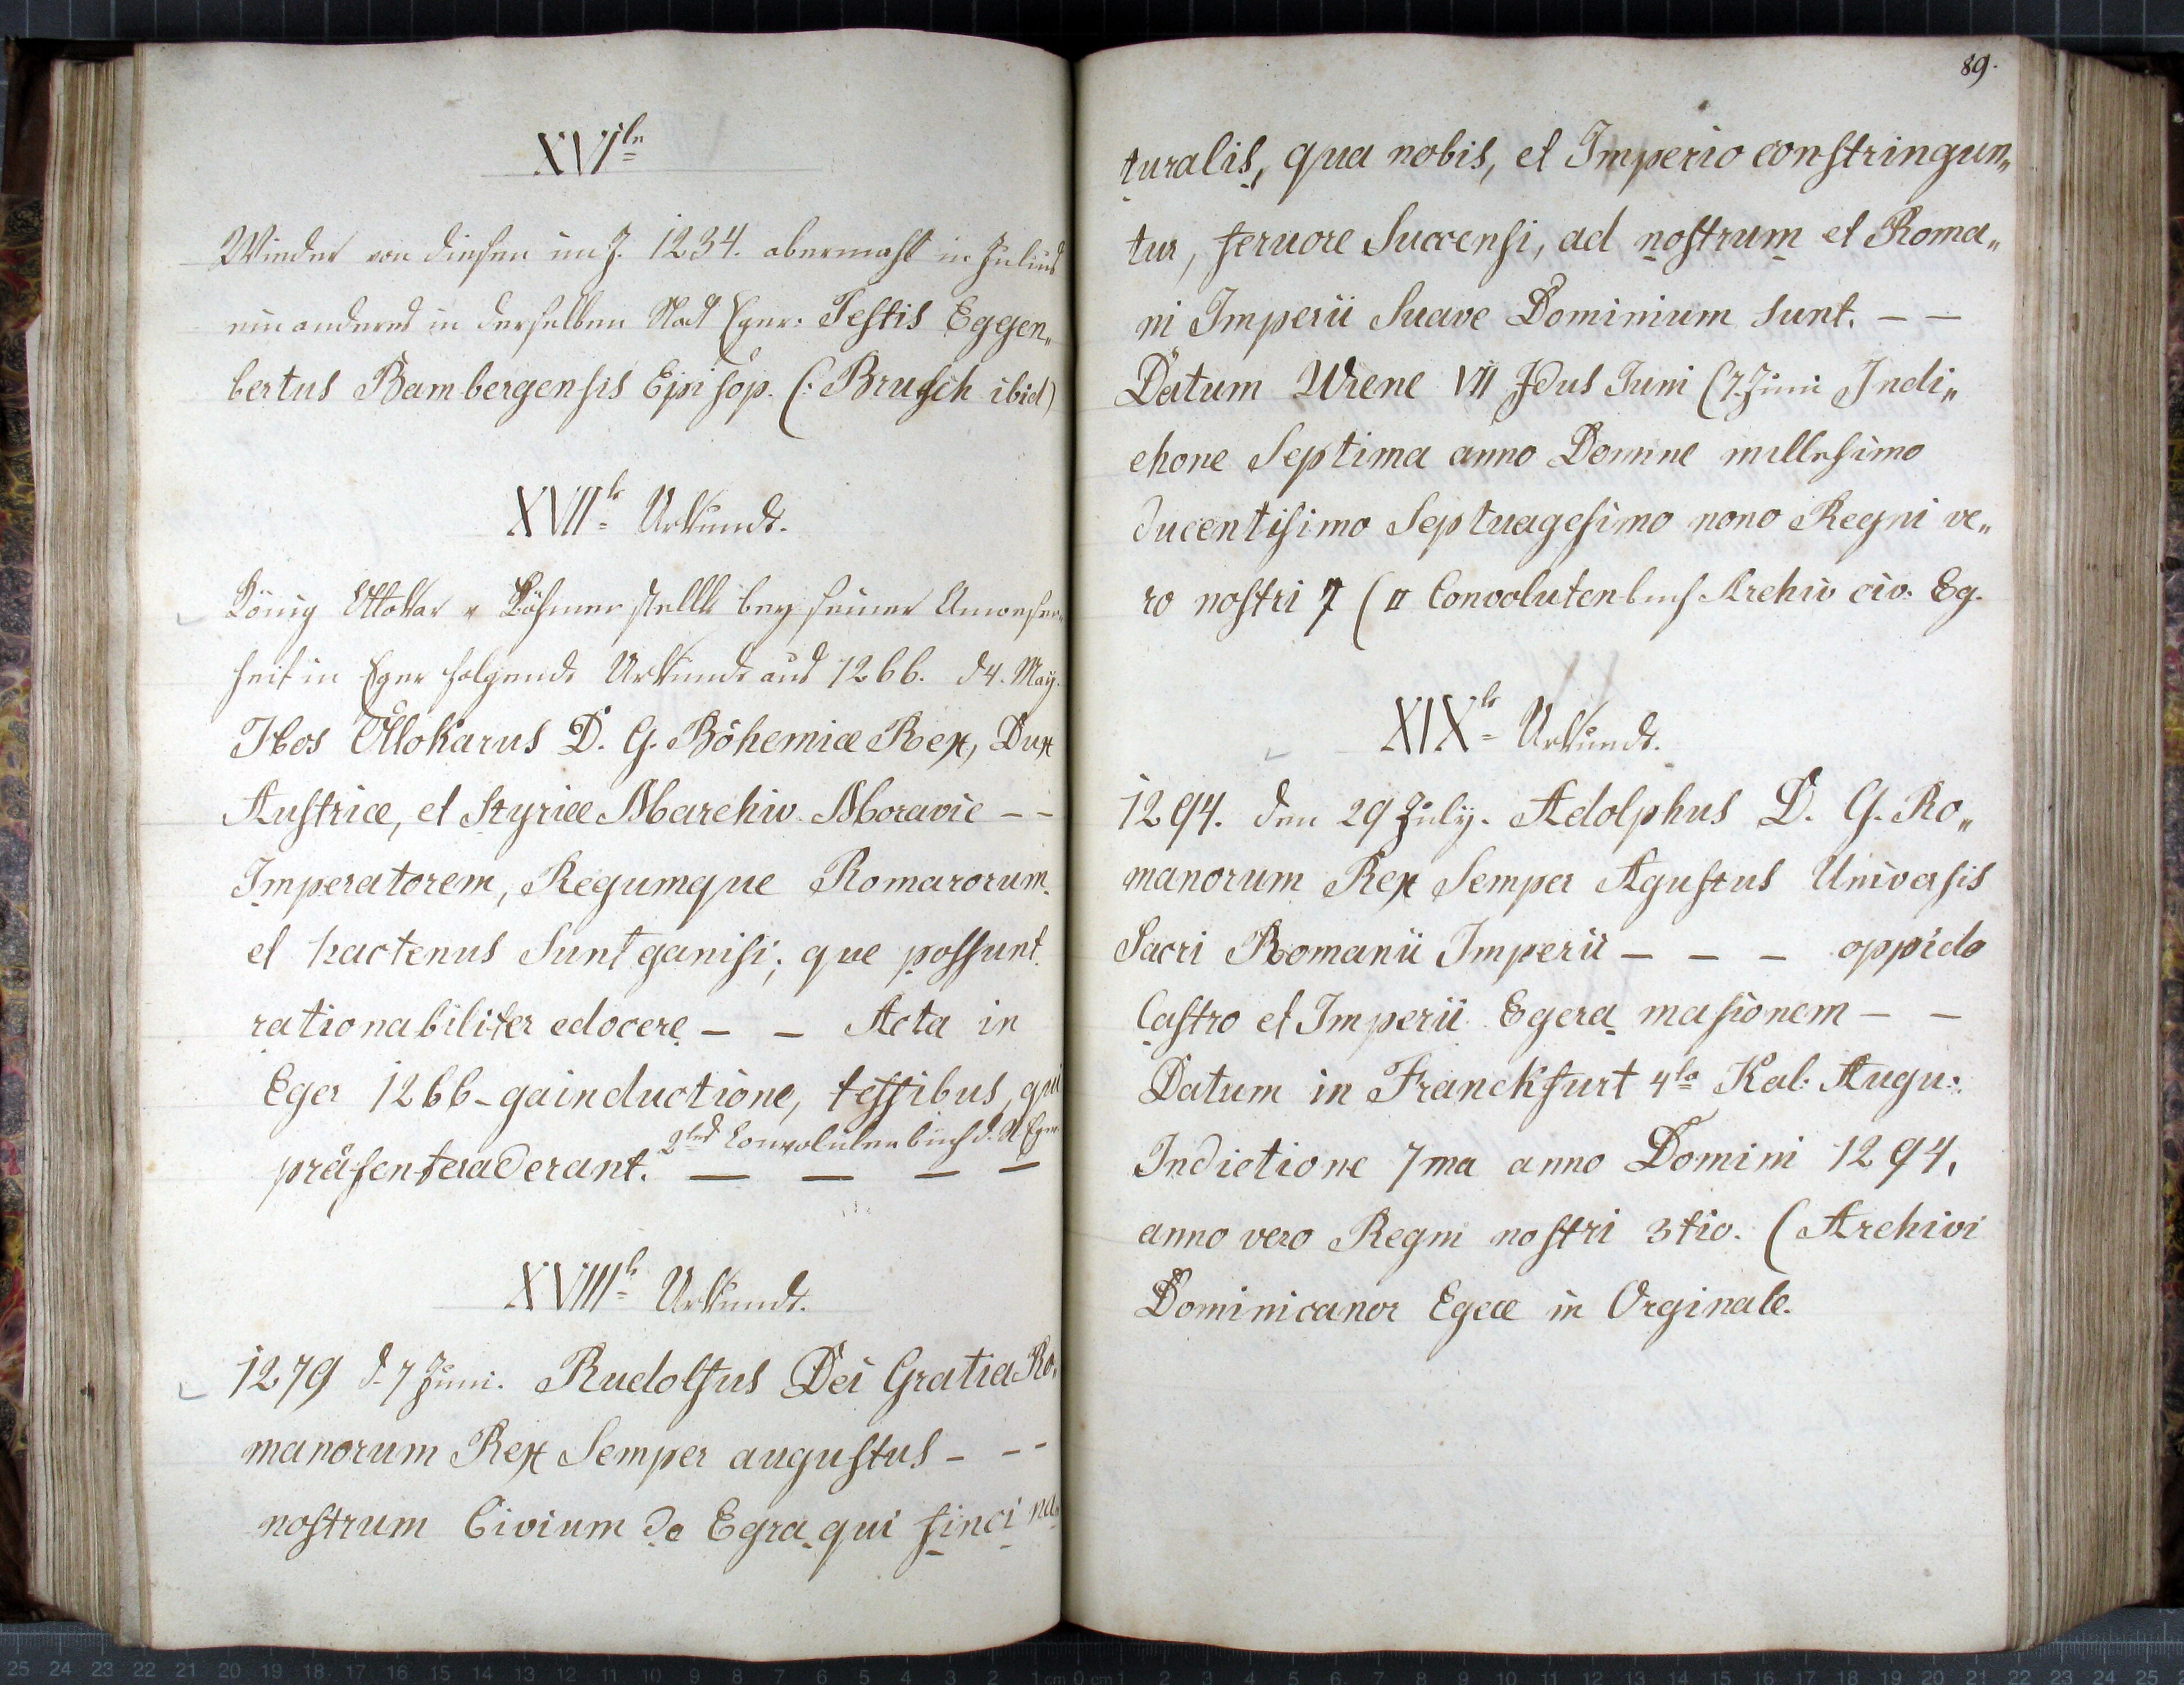 XVI<sup>te</sup>
Wieder von diesen im J. 1234. abermahl in Julius
ein anderes in derselben Stadt Eger: Testis Eggen„
bertus Bambergensis Episop. (: Brusch ibid)
XVII<sup>te</sup> Urkunde.
König Ottokar v Böhmen stellte bey seiner Anwesen„
heit in Eger folgende Urkunde aus 1266. d 4. May.
Nos Ottokarus D. G. Böhemiæ Rex, Dux
Austriæ, et Styriæ Marchio Moravie – –
Imperatorem, Regumque Romarorum.
et hactenus Sunt ganisi; que possunt
rationabiliter edocere – – Acta in
Eger 1266 – gainductione, testibus, qui
präsenteraderant. 2<sup>tes</sup> Convoluten buch d. St Eger
– – – –
XVIII<sup>te</sup> Urkunde.
1279 d. 7 Juni. Rudolfus Dei Gratia Ro„
manorum Rex Semper augustus – – –
nostrum Civium de Egra qui sinci na„
89.
turalis, qua nobis, et Imperio constringun„
tur, feruore Succensi, ad nostrum et Roma„
ni Imperii Suave Dominium Sunt. – –
Datum Wiene VII Jdus Juni (7. Juni Indi„
chone Septima anno Domine millesimo
ducentisimo Septuagesimo nono Regni ve„
ro nostri 7 (II Convolutenbuch Archiv civ. Eg.
XIX<sup>te</sup> Urkunde.
1294. den 29 July. Adolphus D. G. Ro„
manorum Rex Semper Agustus Universis
Sacri Romanii Imperii – – – oppido
Castro et Imperii Egera masionem – –
Datum in Franckfurt 4<sup>to</sup> Kal. Augu:
Indictione 7ma anno Domini 1294,
anno vero Regni nostri 3tio. (Archivi
Dominicanor Egeæ in Orginale.